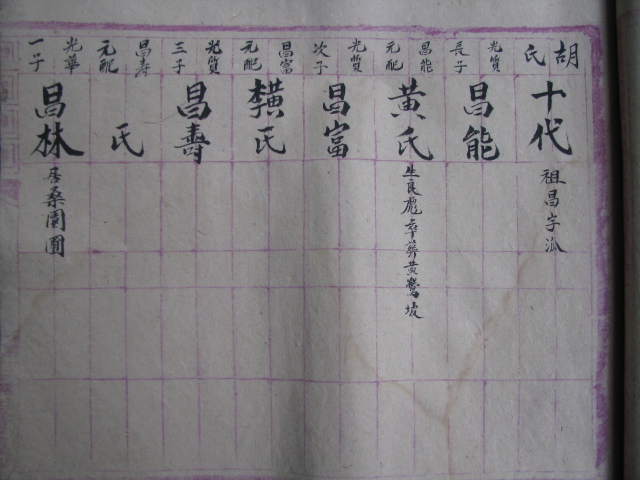 胡氏
十代
祖昌字派
光質
長子
昌能
昌能
元配
黄氏
生良彪卒葬黄鶯坡
光質
次子
昌富
昌富
元配
氏
光質
三子
昌壽
昌壽
元配
氏
光華
一子
昌林
居桑園圃